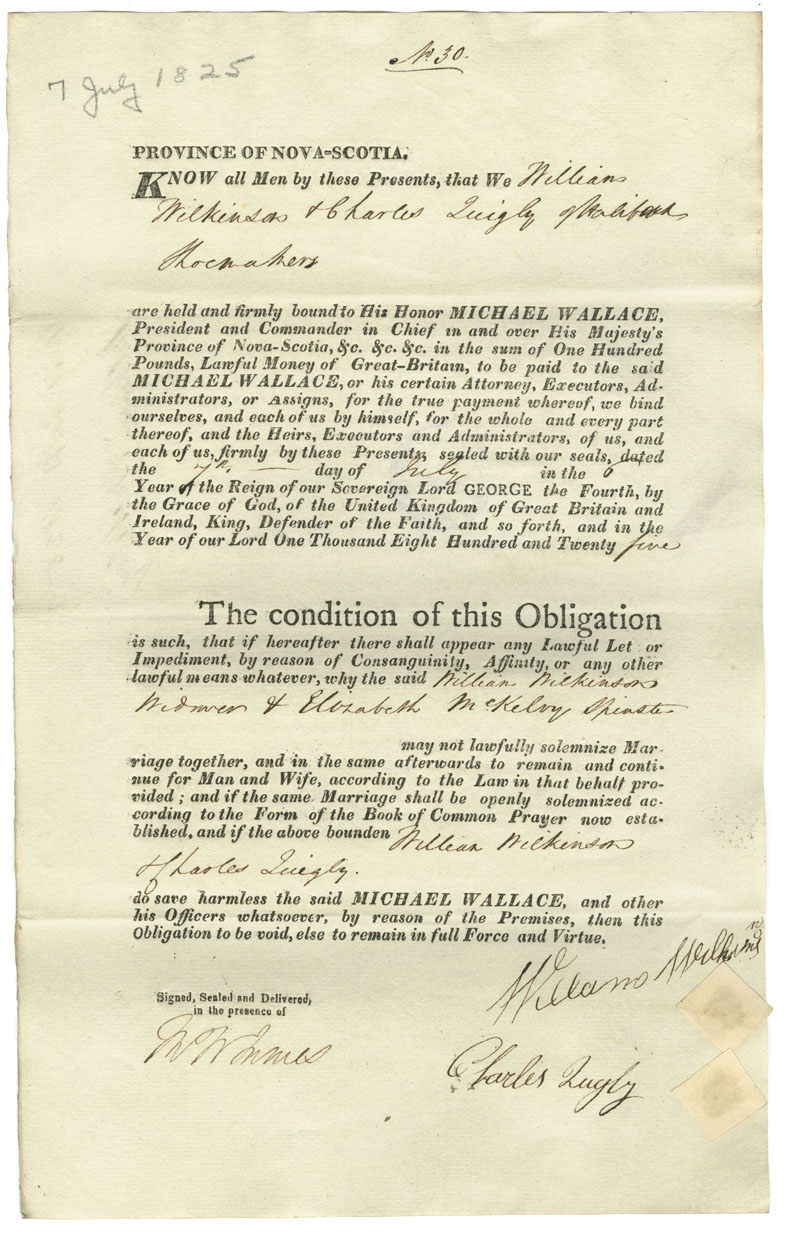 No 30.
7 July 1825
PROVINCE OF NOVA-SCOTIA.
KNOW all Men by these Presents, that We William
Wilkinson & Charles Quigly of Halifax
Shoemakers
are held and firmly bound to His Honor MICHAEL WALLACE,
President and Commander in Chief in and over His Majesty's
Province of Nova-Scotia, &c. &c. &c. in the sum of One Hundred
Pounds, Lawful Money of Great-Britain, to be paid to the said
MICHAEL WALLACE, or his certain Attorney, Executors, Ad-
ministrators, or Assigns, for the true payment whereof, we bind
ourselves, and each of us by himself, for the whole and every part
thereof, and the Heirs, Executors and Administrators, of us, and
each of us, firmly by these Presents, sealed with our seals, dated
the 7th day of July in the 6
Year of the Reign of our Sovereign Lord GEORGE the Fourth, by
the Grace of God, of the United Kingdom of Great Britain and
Ireland, King, Defender of the Faith, and so forth, and in the
Year of our Lord One Thousand Eight Hundred and Twenty five
The condition of this Obligation
is such, that if hereafter there shall appear any Lawful Let or
Impediment, by reason of Consanguinity, Affinity, or any other
lawful means whatever, why the said William Wilkinson
Widower & Elizabeth McKelvy Spinster
may not lawfully solemnize Mar-
riage together, and in the same afterwards to remain and conti-
nue for Man and Wife, according to the Law in that behalf pro-
vided; and if the same Marriage shall be openly solemnized ac-
cording to the Form of the Book of Common Prayer now esta-
blished, and if the above bounden William Wilkinson
& Charles Quigly.
do save harmless the said MICHAEL WALLACE, and other
his Officers whatsoever, by reason of the Premises, then this
Obligation to be void, else to remain in full Force and Virtue.
Signed, Sealed and Delivered,
in the presence of
Charles Quigly